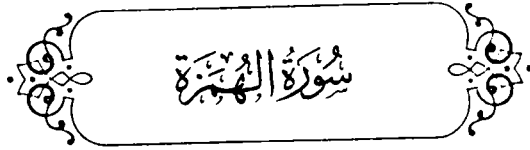 سُورَةُ الْهُمَزَة